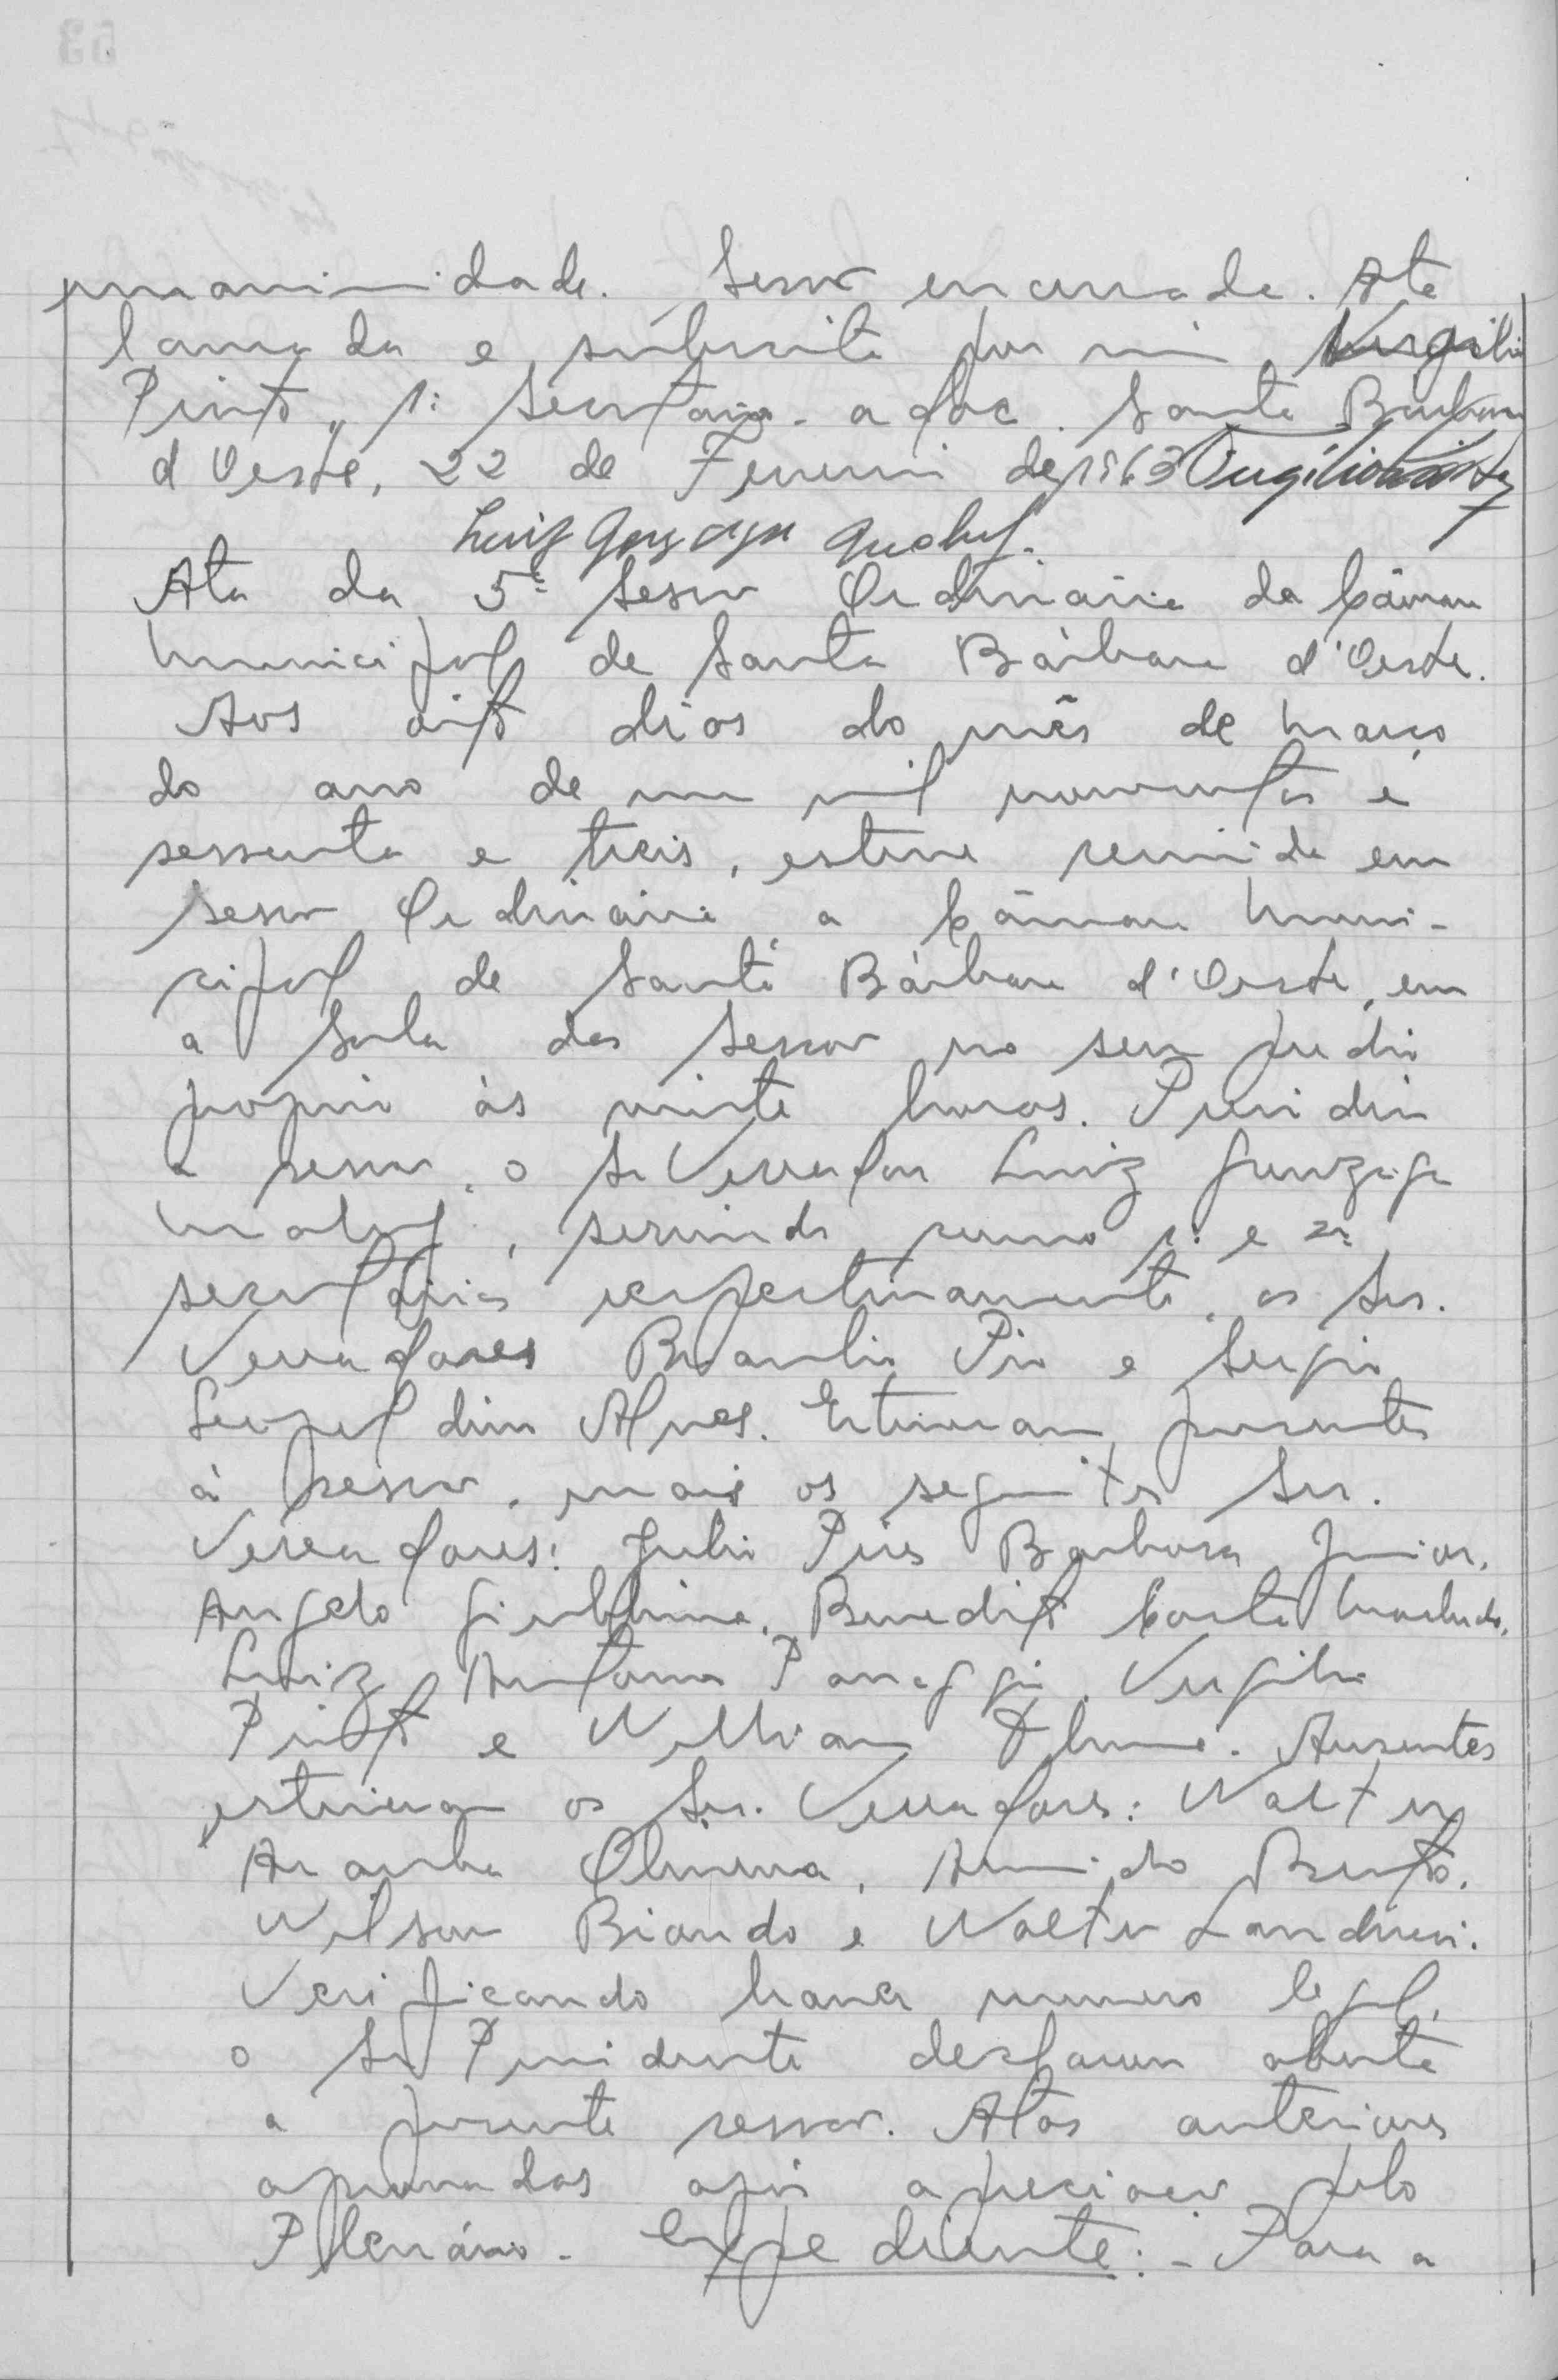 unanimidade. Sessão encerrada. Ata
lavrada e subscrita por mim Virgilio
Pinto, 1º Secretario - adoc. Santa Bárbara
d'Oeste, 22 de Fevereiro de 1963
Luiz Gonzaga
Ata da 5ª Sessão Ordinária da Câmara
Municipal de Santa Bárbara d'Oeste.
Aos oito dias do mês de Março
do ano de um mil novecentos e
sessenta e treis, esteve reunida em
sessão Ordinária a Câmara Muni-
cipal de Santa Bárbara d'Oeste, em
a Sala das Sessões no seu predio
proprio às vinte horas. Presidiu
a sessão, o Sr Vereador Luiz Gonzaga
Maluf, servindo como 1º e 2º
secretários respectivamente, os Srs.
Vereadores Braulio Pio e Sergio
Leopoldino Alves. Estiveram presentes
à sessão, mais os seguintes Srs.
Vereadores: Julio Pires Barbosa Junior,
Angelo Giubbina, Benedito Costa Machado,
Luiz Antonio Panaggio, Virgilio
Pinto e Willian. Ausentes
estiveram os Srs. Vereadores: Walter
Aranha Oliveira, Armindo Bento,
Wilson Biando e Walter Landucci.
Verificando haver numero legal,
o Sr Presidente declarou aberta
a presente sessão. Atas anteriores
aprovadas após apreciação pelo
Plenário - Expediente: - Para a